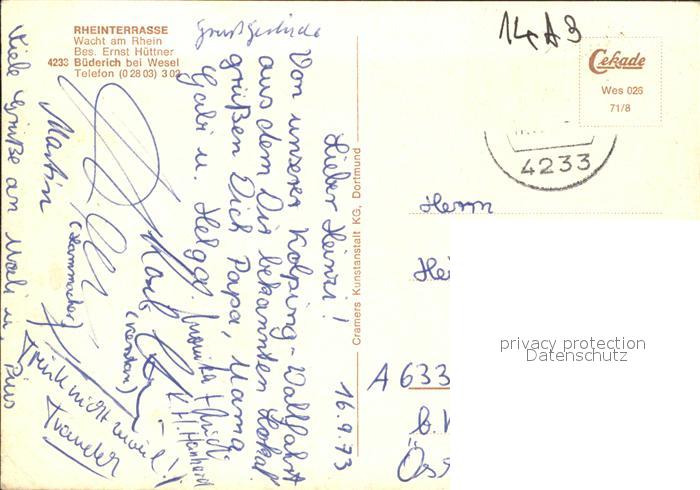 RHEINTERRASSE
Wacht am Rhein
Bes. Ernst Hüttner
4233 Büderich bei Wesel
Telefon (0 28 03) 3 02
14A3
Cekade
Wes 026
71/8
4233
Cramers Kunstanstalt KG, Dortmund
16.9.73
Lieber Heinzi!
Von unserer Kolping-Wallfahrt
aus dem Dir bekannten Lokal
grüßen Dich Papa, Mama
Gabi u. Helga.
Martin
Viele Grüße an Uroli u. Pius
Trink nicht zuviel!
Herrn
Hei
A 633
b. K
Öss
privacy protection
Datenschutz